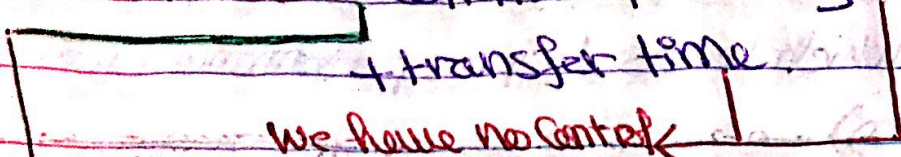 + transfer time
we have no Control